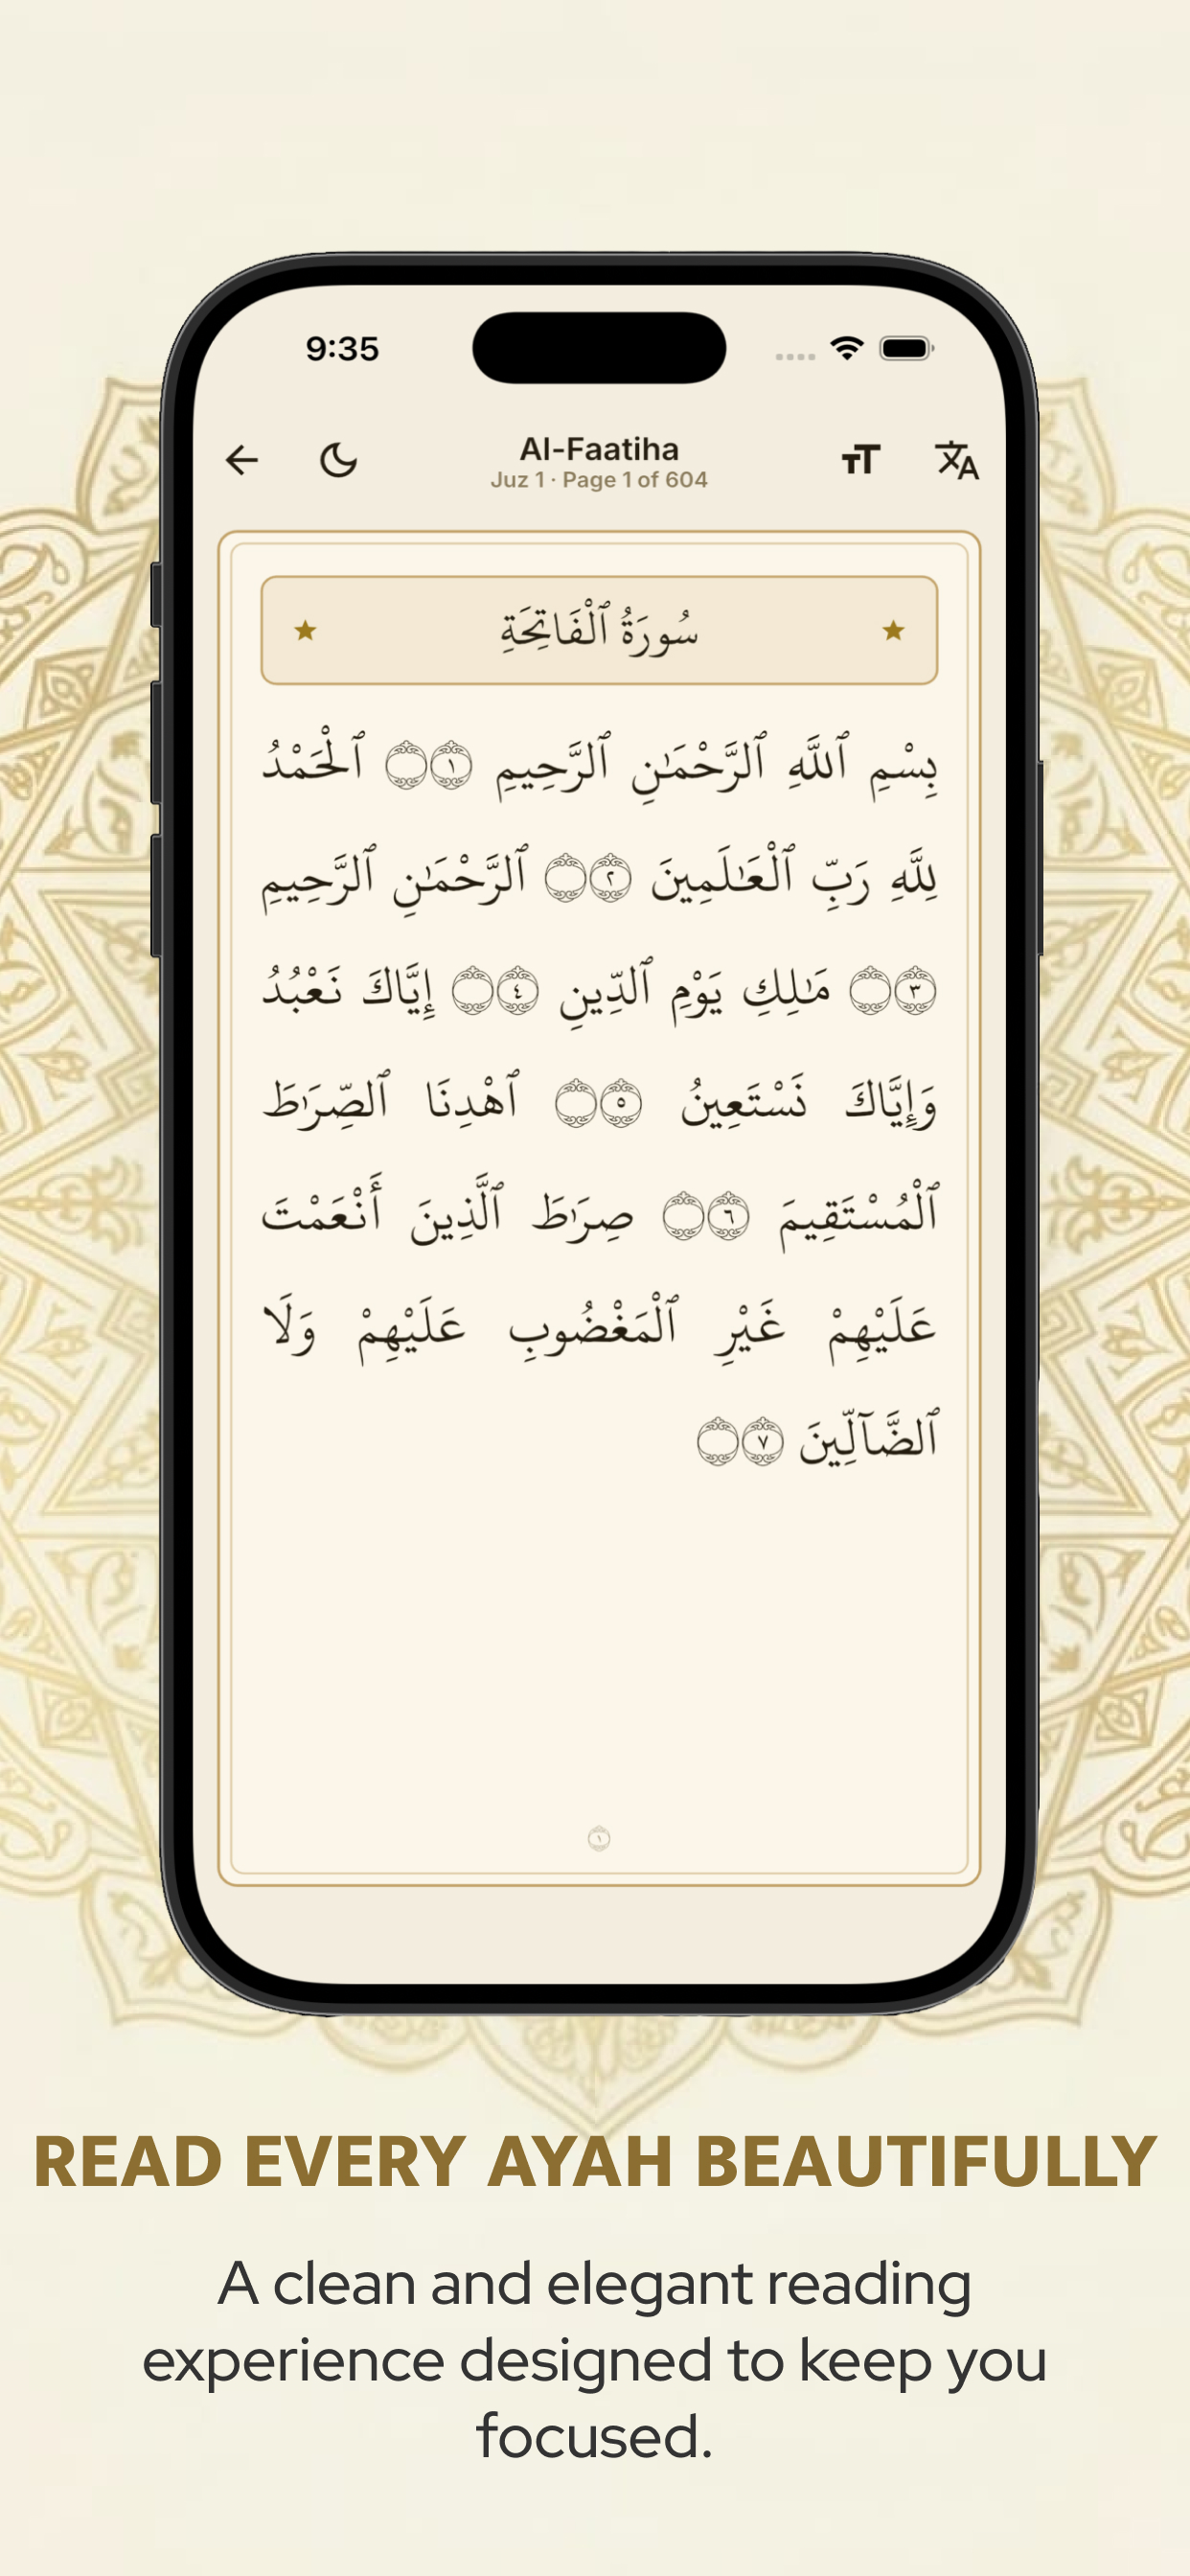 9:35
Al-Faatiha
Juz 1 · Page 1 of 604
سُورَةُ ٱلْفَاتِحَةِ
بِسْمِ ٱللَّهِ ٱلرَّحْمَـٰنِ ٱلرَّحِيمِ ١ ٱلْحَمْدُ
لِلَّهِ رَبِّ ٱلْعَـٰلَمِينَ ٢ ٱلرَّحْمَـٰنِ ٱلرَّحِيمِ
٣ مَـٰلِكِ يَوْمِ ٱلدِّينِ ٤ إِيَّاكَ نَعْبُدُ
وَإِيَّاكَ نَسْتَعِينُ ٥ ٱهْدِنَا ٱلصِّرَٰطَ
ٱلْمُسْتَقِيمَ ٦ صِرَٰطَ ٱلَّذِينَ أَنْعَمْتَ
عَلَيْهِمْ غَيْرِ ٱلْمَغْضُوبِ عَلَيْهِمْ وَلَا
ٱلضَّآلِّينَ ٧
١
READ EVERY AYAH BEAUTIFULLY
A clean and elegant reading
experience designed to keep you
focused.